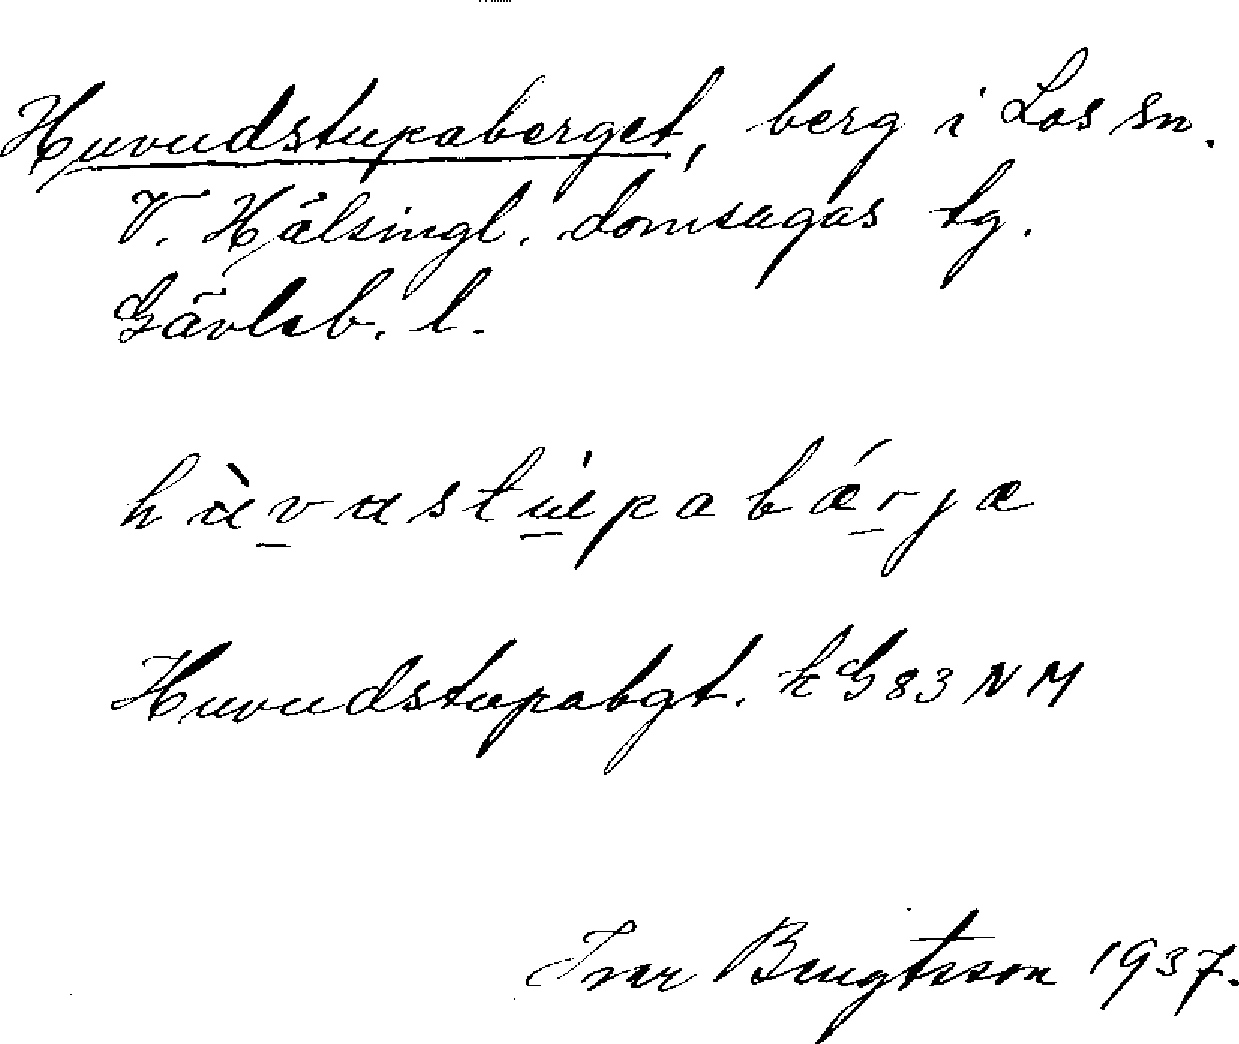 Huvudstupaberget, berg i Los sn.
V. Hälsingl. domsagas tg.
Gävleb. l.
hùvustupabǽrja
Huvudstupabgt. kG83 NM
Ivar Bengtsson 1937.